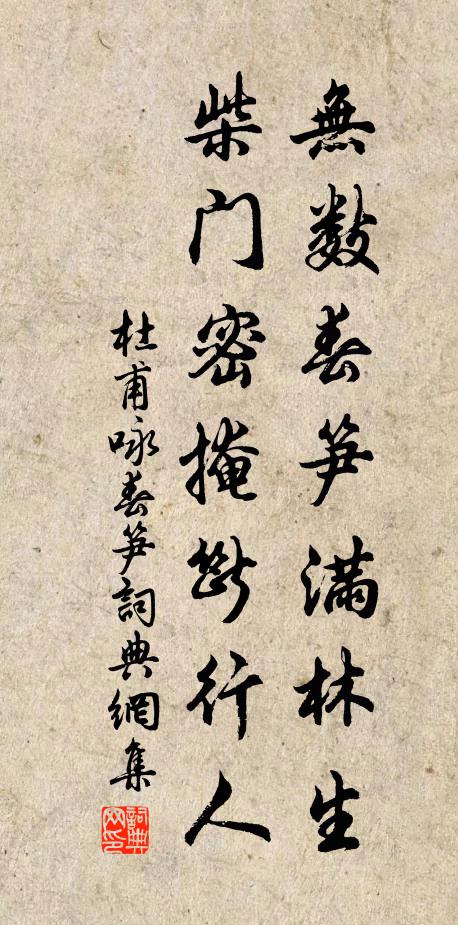 無數春笋滿林生
柴门密掩斷行人
杜甫咏春笋詞典網集
詞典网印